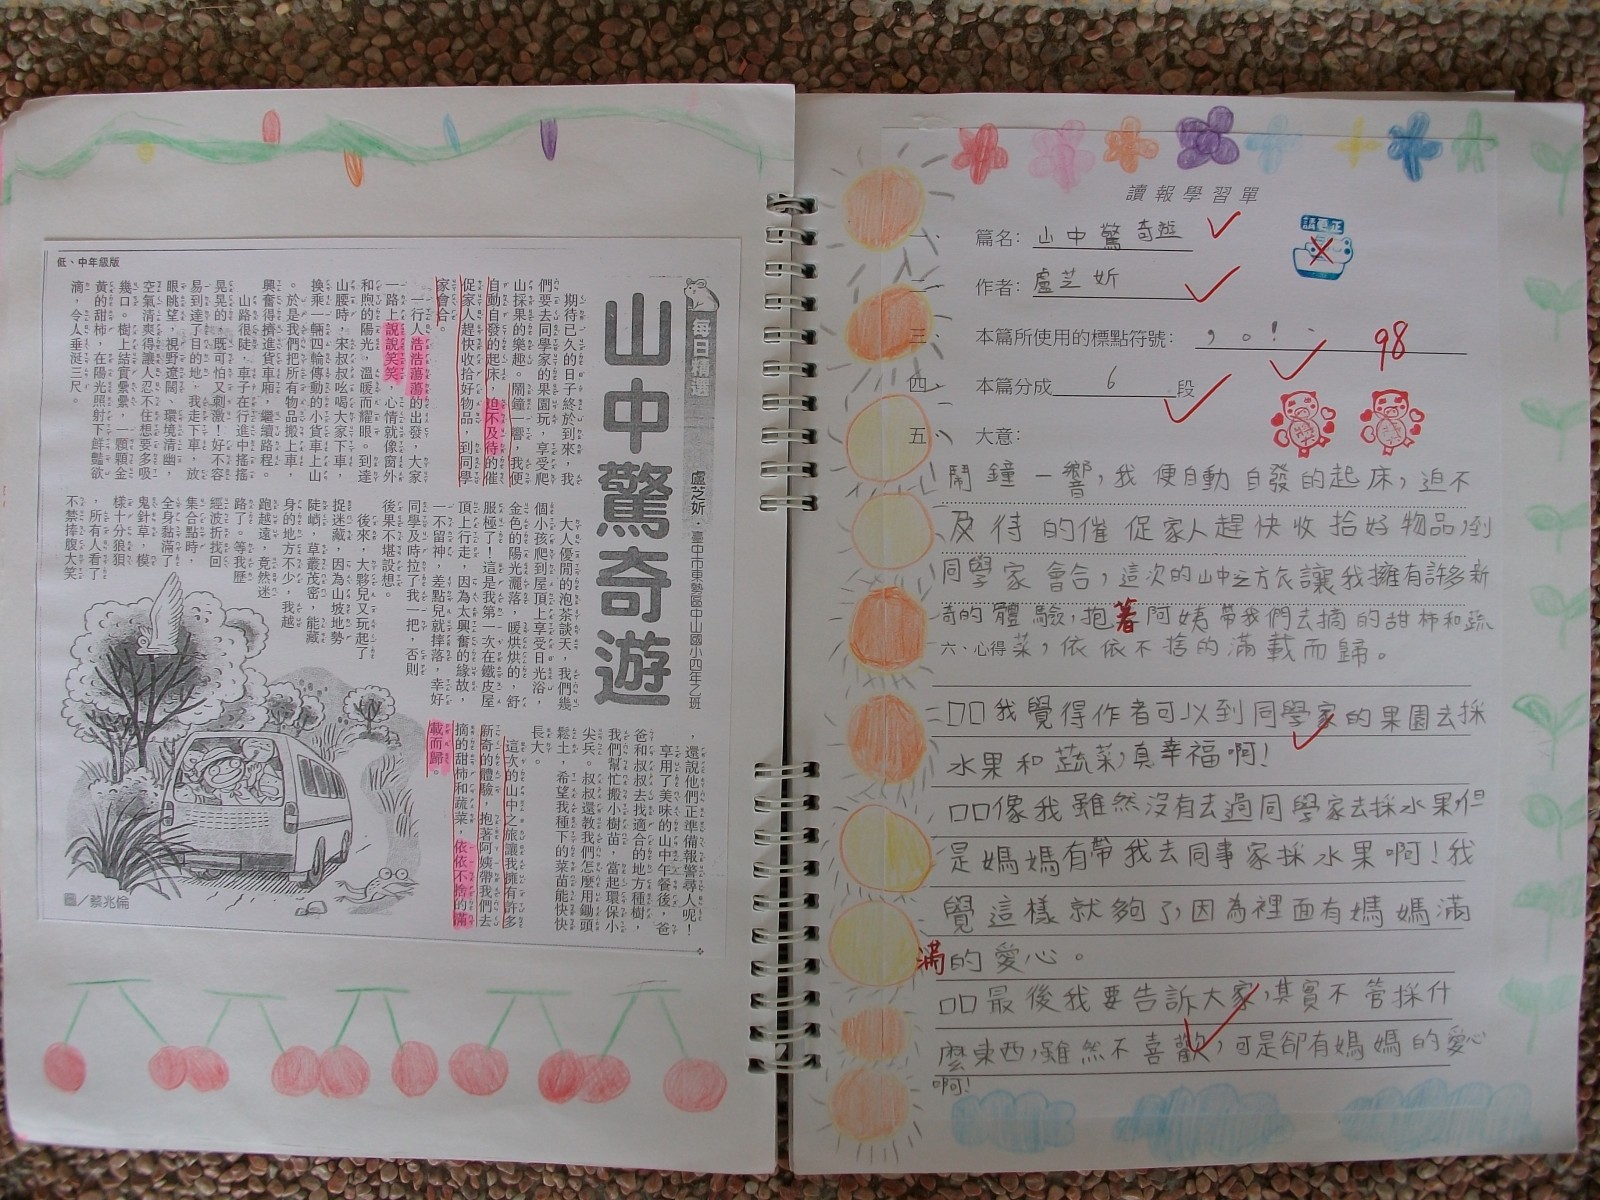 低、中年級版
每日精選
山中驚奇遊
盧芝妡．臺中市東勢區中山國小四年乙班
期待已久的日子終於到來，我
們要去同學家的果園玩，享受爬
山採果的樂趣。鬧鐘一響，我便
自動自發的起床，迫不及待的催
促家人趕快收拾好物品，到同學
家會合。
一行人浩浩蕩蕩的出發，大家
一路上說說笑笑，心情就像窗外
和煦的陽光，溫暖而耀眼。到達
山腰時，宋叔叔吆喝大家下車，
換乘一輛四輪傳動的小貨車上山
。於是我們把所有物品搬上車，
興奮得擠進貨車廂，繼續路程。
山路很陡，車子在行進中搖搖
晃晃的，既可怕又刺激！好不容
易到達了目的地，我走下車，放
眼眺望，視野遼闊、環境清幽，
空氣清爽得讓人忍不住想要多吸
幾口。樹上結實纍纍，一顆顆金
黃的甜柿，在陽光照射下鮮豔欲
滴，令人垂涎三尺。
大人優閒的泡茶談天，我們幾
個小孩爬到屋頂上享受日光浴，
金色的陽光灑落，暖烘烘的，舒
服極了！這是我第一次在鐵皮屋
頂上行走，因為太興奮的緣故，
一不留神，差點兒就摔落，幸好
同學及時拉了我一把，否則
後果不堪設想。
後來，大夥兒又玩起了
捉迷藏，因為山坡地勢
陡峭，草叢茂密，能藏
身的地方不少，我越
跑越遠，竟然迷
路了。等我歷
經波折找回
集合點時，
全身黏滿了
鬼針草，模
樣十分狼狽
，所有人看了
不禁捧腹大笑
，還說他們正準備報警尋人呢！
享用了美味的山中午餐後，爸
爸和叔叔去找適合的地方種樹，
我們幫忙搬小樹苗，當起環保小
尖兵。叔叔還教我們怎麼用鋤頭
鬆土，希望我種下的菜苗能快快
長大。
這次的山中之旅讓我擁有許多
新奇的體驗，抱著阿姨帶我們去
摘的甜柿和蔬菜，依依不捨的滿
載而歸。
圖／蔡兆倫
讀報學習單
一、 篇名：山中驚奇遊
作者：盧芝妡
三、 本篇所使用的標點符號：，。！、
98
四、 本篇分成6段
五、 大意：
鬧鐘一響，我便自動自發的起床，迫不
及待的催促家人趕快收拾好物品，到
同學家會合，這次的山中之方衣讓我擁有許多新
奇的體驗，抱著阿姨帶我們去摘的甜柿和蔬
六、心得 菜，依依不捨的滿載而歸。
□□我覺得作者可以到同學家的果園去採
水果和蔬菜，真幸福啊！
□□像我雖然沒有去過同學家去採水果，但
是媽媽有帶我去同事家採水果啊！我
覺這樣就夠了，因為裡面有媽媽滿
滿的愛心。
□□最後我要告訴大家，其實不管採什
麼東西，雖然不喜歡，可是卻有媽媽的愛心
啊！